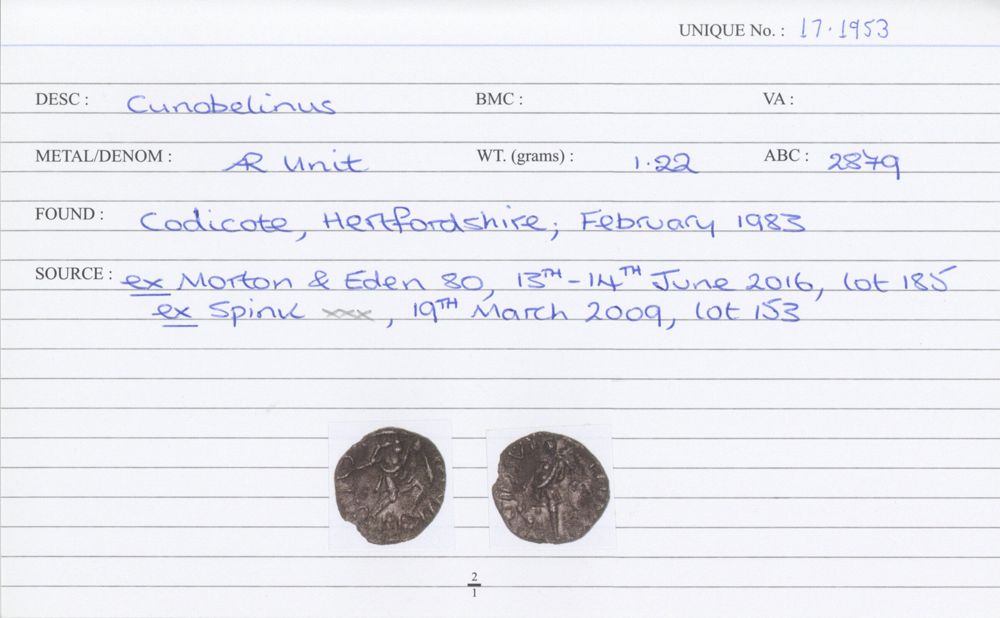 UNIQUE No. : 17.1953
DESC : Cunobelinus BMC : VA :
METAL/DENOM : AR Unit WT. (grams) : 1.22 ABC : 2879
FOUND : Codicote, Hertfordshire; February 1983
SOURCE : ex Morton & Eden 80, 13TH-14TH June 2016, lot 185
ex Spink xxx, 19TH March 2009, lot 153
2
1